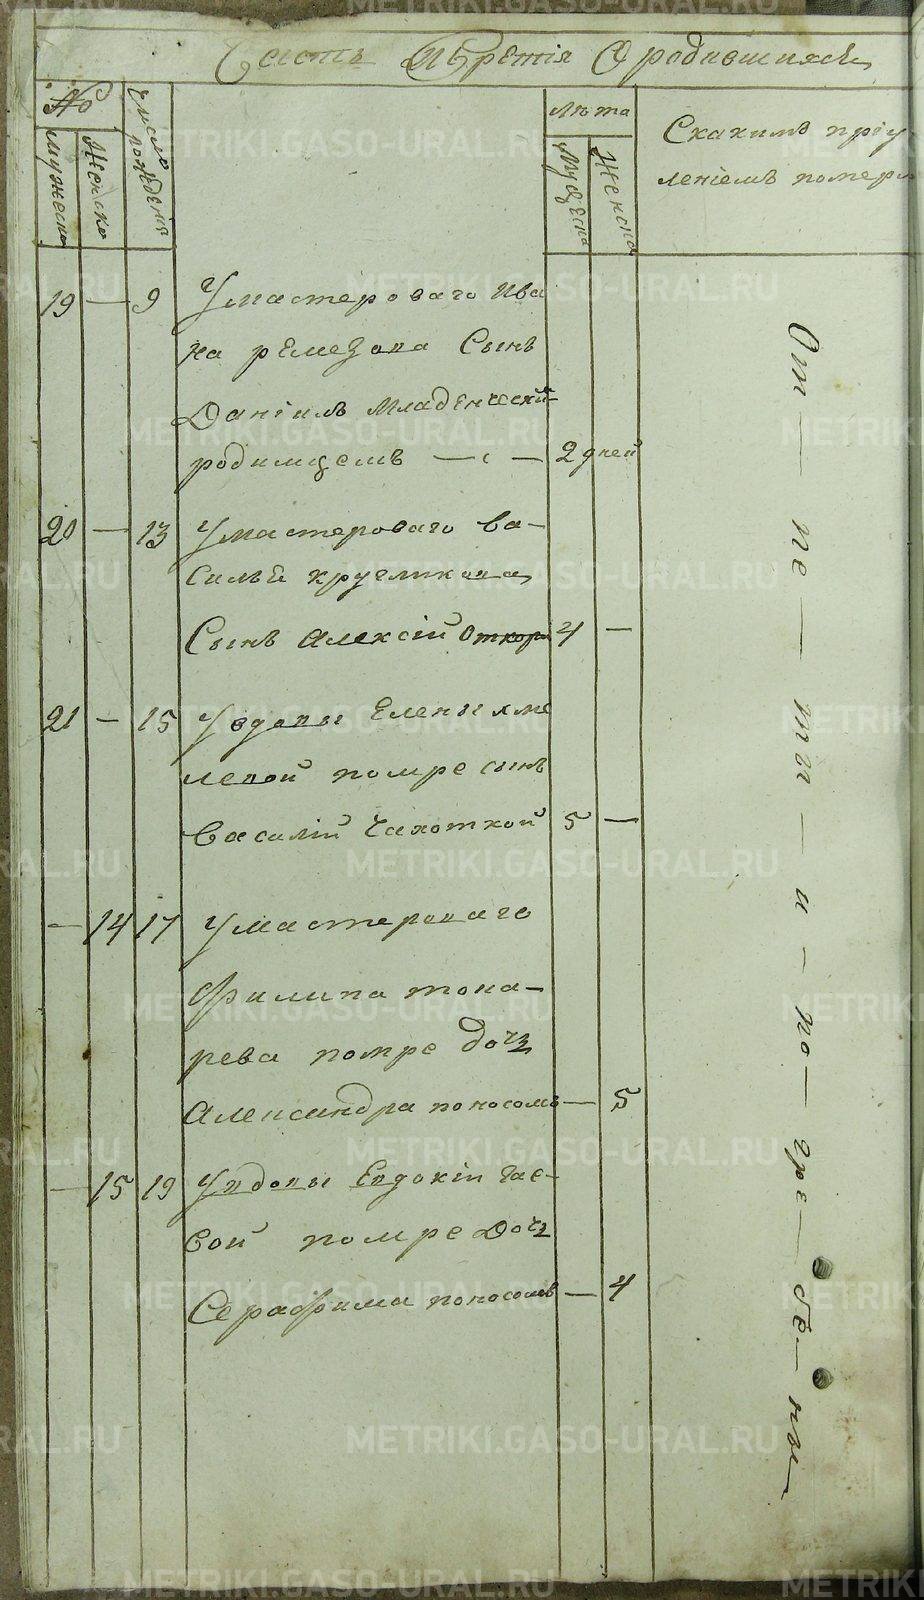 Часть Третія О родившихся
№
Мужеска
Женска
Число рождения
Лѣта
Мужеска
Женска
Скакимъ пріу
леніемъ помер
19 — 9 Умастероваго Ива
на ремезова Сынъ
Даніилъ Младенческій
родимцемъ — 2 дней
20 — 13 Умастероваго ва-
силья кругликова
Сынъ Алексій Откори 4 —
21 — 15 Увдовы Елены хме
левой помре сынъ
Василій Чахоткой 5 —
— 14 17 Умастероваго
Филипа тока-
рева помре дочь
Александра поносомъ — 5
— 15 19 Увдовы Евдокіи Гае-
вой помре Дочь
Серафима поносомъ — 4
От — пе — ты — и — по — гре — бе — ны
METRIKI.GASO-URAL.RU